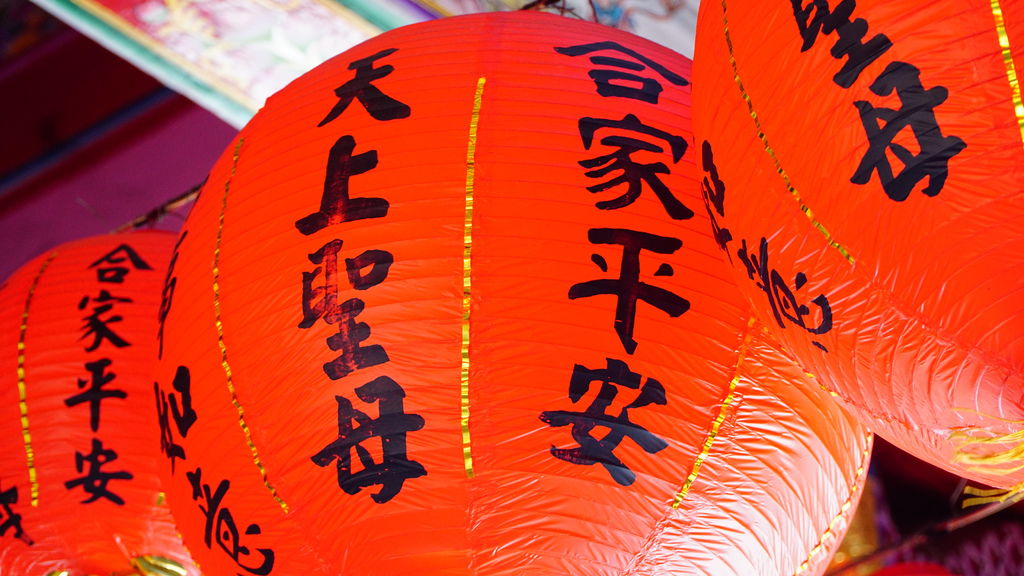 合家平安
天上聖母
合家平安
聖母